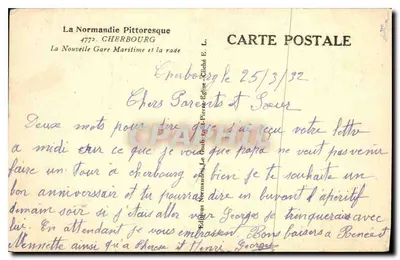 La Normandie Pittoresque
4772. CHERBOURG
La Nouvelle Gare Maritime et la rade
CARTE POSTALE
Cherbourg le 25/3/32
Chers Parents et Soeur
Deux mots pour dire que j'ai reçu votre lettre
a midi sur ce que je vois que papa ne veut pas venir
faire un tour a cherbourg eh bien je te souhaite un
bon anniverssair et tu pourras dire en buvant l'apéritif
demain soir si j'étais aller voir Georges je trinquerais avec
lui. En attendant je vous embrassent Bons baisers a Renée et
Nennette ainsi qu'a et Henri Georges